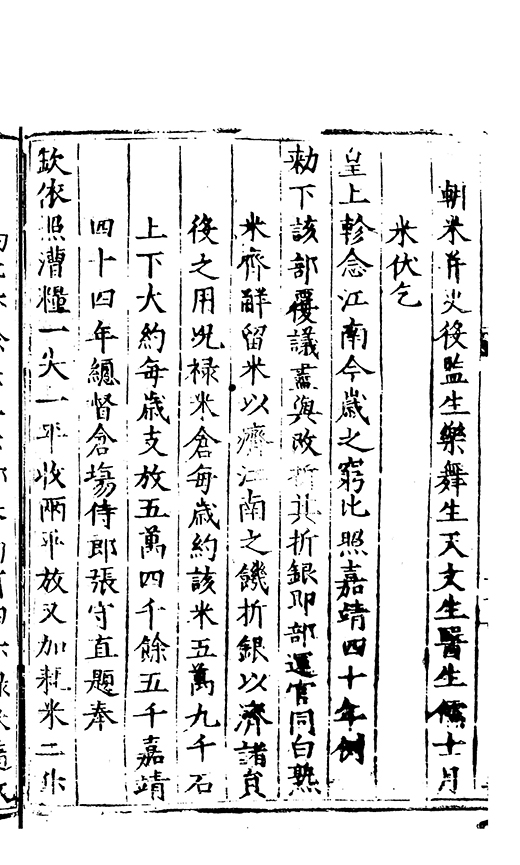 朝米并吏役監生樂舞生天文生醫生儒士月
米伏乞
皇上軫念江南今歲之窮比照嘉靖四十年例
勑下該部覆議盡與改折其折銀即部運官同白熟
米齊觧留米以濟江南之饑折銀以濟諸員
役之用况祿米倉每歲約該米五萬九千石
上下大約每歲支放五萬四千餘五千嘉靖
四十四年總督倉場侍郎張守直題奉
欽依照漕糧一尖一平收兩平放又加耗米二升